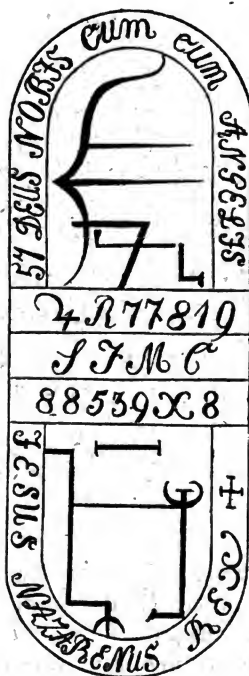 57 DEUS NOBIS cum cum ANGELIS
4 R 77819
S I M C
88539 X 8
JESUS NAZARENUS REX